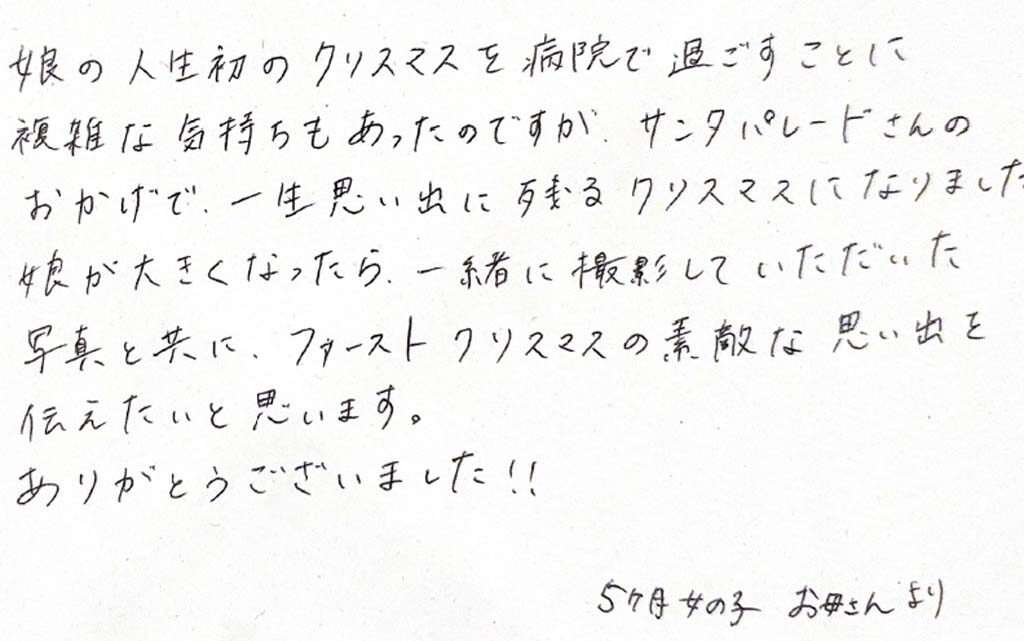 娘の人生初のクリスマスを病院で過ごすことに
複雑な気持ちもあったのですが、サンタパレードさんの
おかげで、一生思い出に残るクリスマスになりました
娘が大きくなったら、一緒に撮影していただいた
写真と共に、ファーストクリスマスの素敵な思い出を
伝えたいと思います。
ありがとうございました!!
5ヶ月女の子 お母さんより